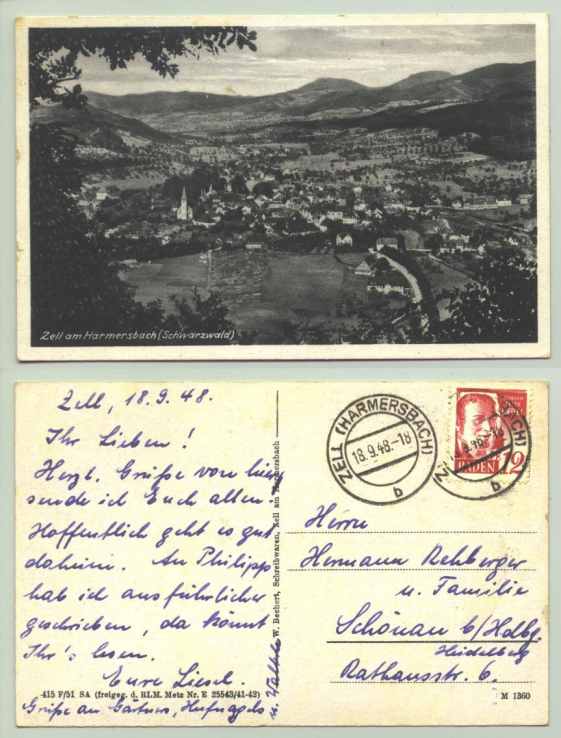 Zell am Harmersbach (Schwarzwald)
Zell, 18.9.48.
Ihr Lieben!
Herzl. Grüße von hier
sende ich Euch allen.
Hoffentlich geht es gut
daheim. An Philipp
hab ich ausführlicher
geschrieben, da könnt
Ihr's lesen.
Eure Liesel.
Grüße an Gärtners, Hufnagels
u.
415 F/51 SA (freigeg. d. RLM. Metz Nr. E 25543/41-42)
W. Bechert, Schreibwaren, Zell am Harmersbach
ZELL (HARMERSBACH)
18.9.48.-18
b
BADEN
12
b
Herrn
Hermann Rehberger
u. Familie
Schönau b/Hdlbg.
Heidelberg
Rathausstr. 6.
M 1360